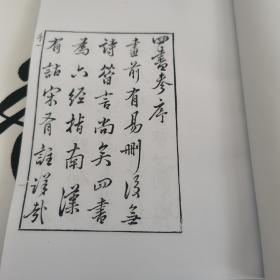 四書參序
畫前有易刪後無
詩簡言尚矣四書
為六經指南漢
有詁宋有註詳